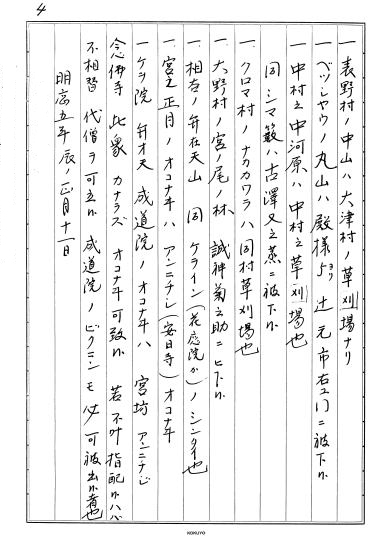 4
一 表野村ノ中山ハ大津村ノ草刈場ナリ
一 ベツシヤウノ丸山ハ殿様ヨリ 辻 元市右ヱ门ニ被下候
一 中村之中河原ハ 中村之草刈場也
同シマ籔ハ古澤又之丞ニ被下候
一 クロマ村ノナカカワラハ同村草刈場也
一 大野村ノ宮ノ尾ノ林 誠神菊之助ニ被下候
一 相谷ノ弁在天山 同 ケライン(花应院か)ノシンタイ也
一 宮之正月ノオコナヰハ アンニチシ(安日寺)オコナヰ
一 ケヲ院 弁才天 成道院ノオコナヰハ 宮坊 アンニチシ
念佛寺 此衆 カナラズ オコナヰ可致候 若不叶指配候ハバ
不相替 代僧ヲ可立候 成道院ノビクニンモ必可被出候者也
明応五年辰ノ正月十一日
KOKUYO